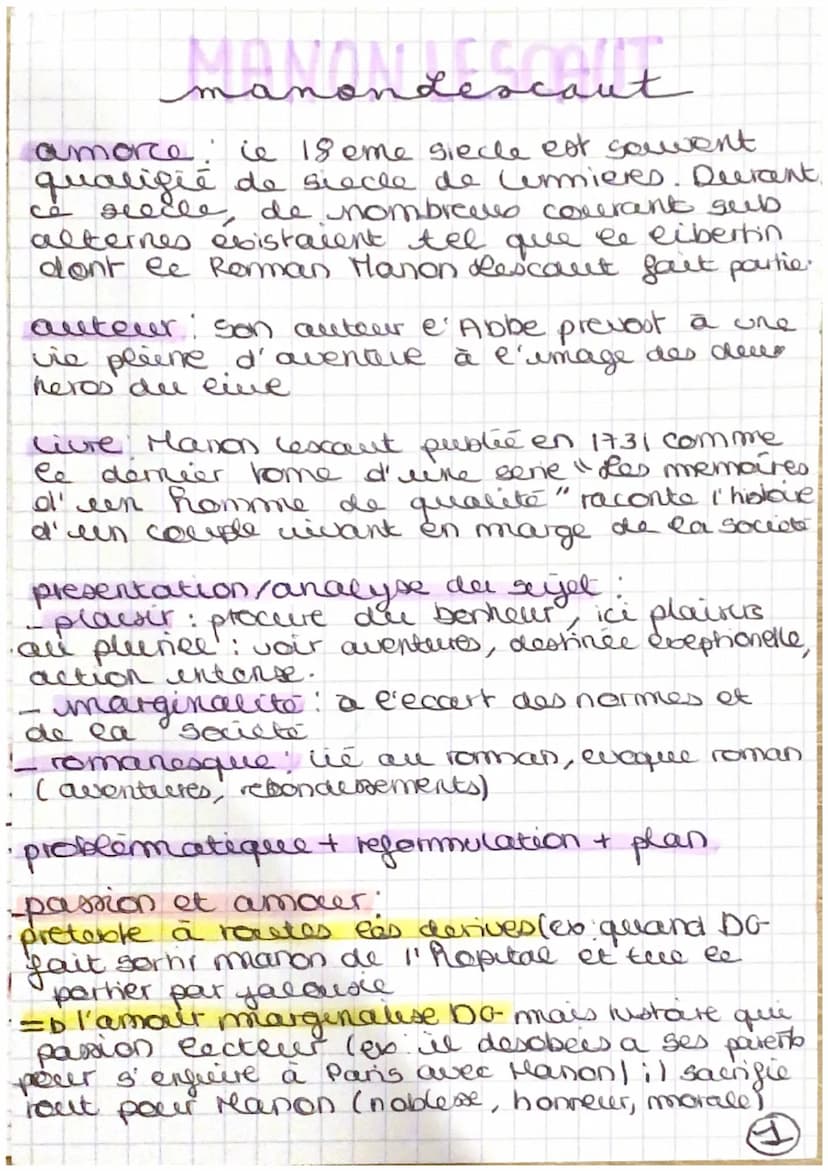 MANON LESCAUT
manon Lescaut
amorce : le 18 eme siecle est souvent
qualifié de siecle de lumieres. Durant
ce siecle, de nombreux courant sub
alternes existaient tel que le libertin
dont le Roman Manon Lescaut fait partie.
auteur : son auteur l'Abbe prevost à une
vie pleine d'aventure à l'image des deux
heros du livre
livre : Manon Lescaut publié en 1731 comme
le dernier tome d'une serie "Les memoires
d'un homme de qualité" raconte l'histoire
d'un couple vivant en marge de la societé
presentation/analyse du sujet :
- plaisir : procure du bonheur, ici plaisirs
au pluriel : voir aventures, destinée exeptionelle,
action intense.
- marginalité : à l'ecart des normes et
de la société
- romanesque : lié au roman, evoque roman
(aventures, rebondissements)
problématique + reformulation + plan
- passion et amour :
pretexte à toutes les derives (ex: quand DG
fait sortir manon de l'Hopital et tue le
portier par jalousie
=D l'amour marginalise DG mais histoire qui
passion lecteur (ex: il desobeis a ses parents
pour s'enfuire à Paris avec Manon) il sacrifie
tout pour Manon (noblesse, honneur, morale)
1